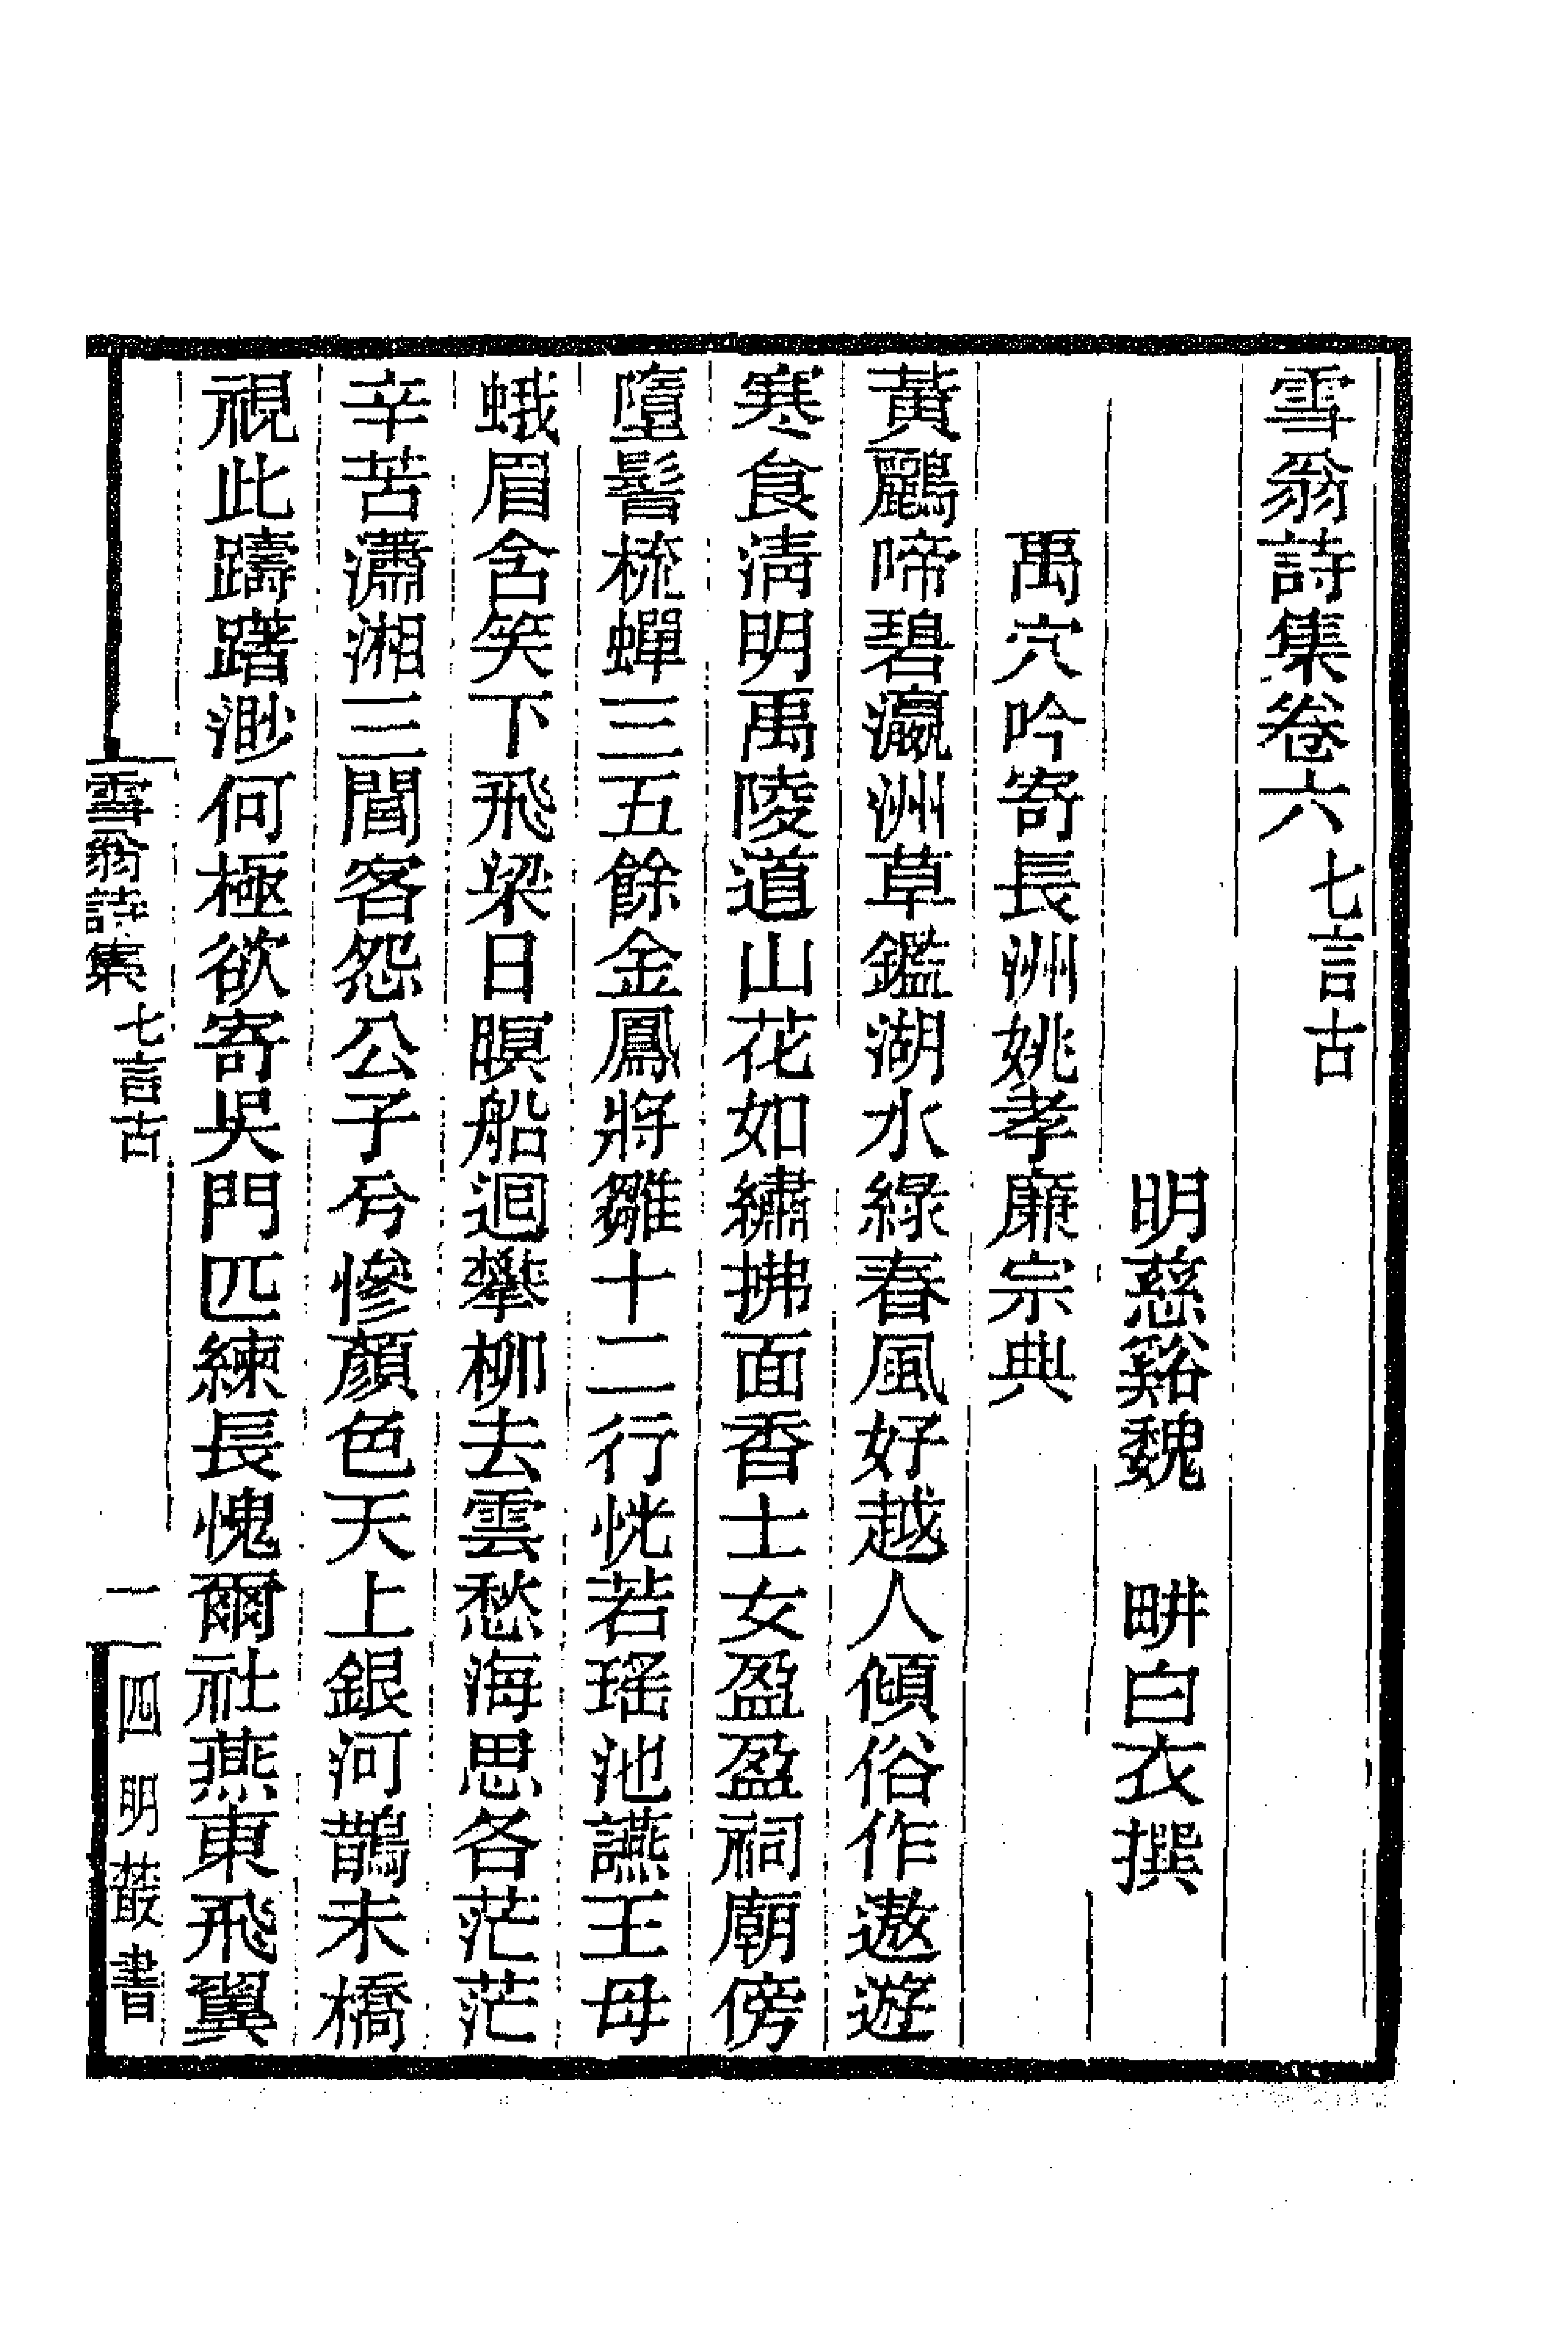 雪翁詩集卷六七言古
明慈谿魏　畊白衣撰
禹穴吟寄長洲姚孝廉宗典
黃鸝啼碧瀛洲草鑑湖水綠春風好越人傾俗作遨遊
寒食淸明禹陵道山花如繡拂面香士女盈盈祠廟傍
墮髻梳蟬三五餘金鳳將雛十二行恍若瑤池讌王母
蛾眉含笑下飛梁日暝船迴攀柳去雲愁海思各茫茫
辛苦瀟湘三閭客怨公子兮慘顏色天上銀河鵲未橋
視此躊躇渺何極欲寄吳門匹練長愧爾社燕東飛翼
雪翁詩集七言古
一
四明叢書